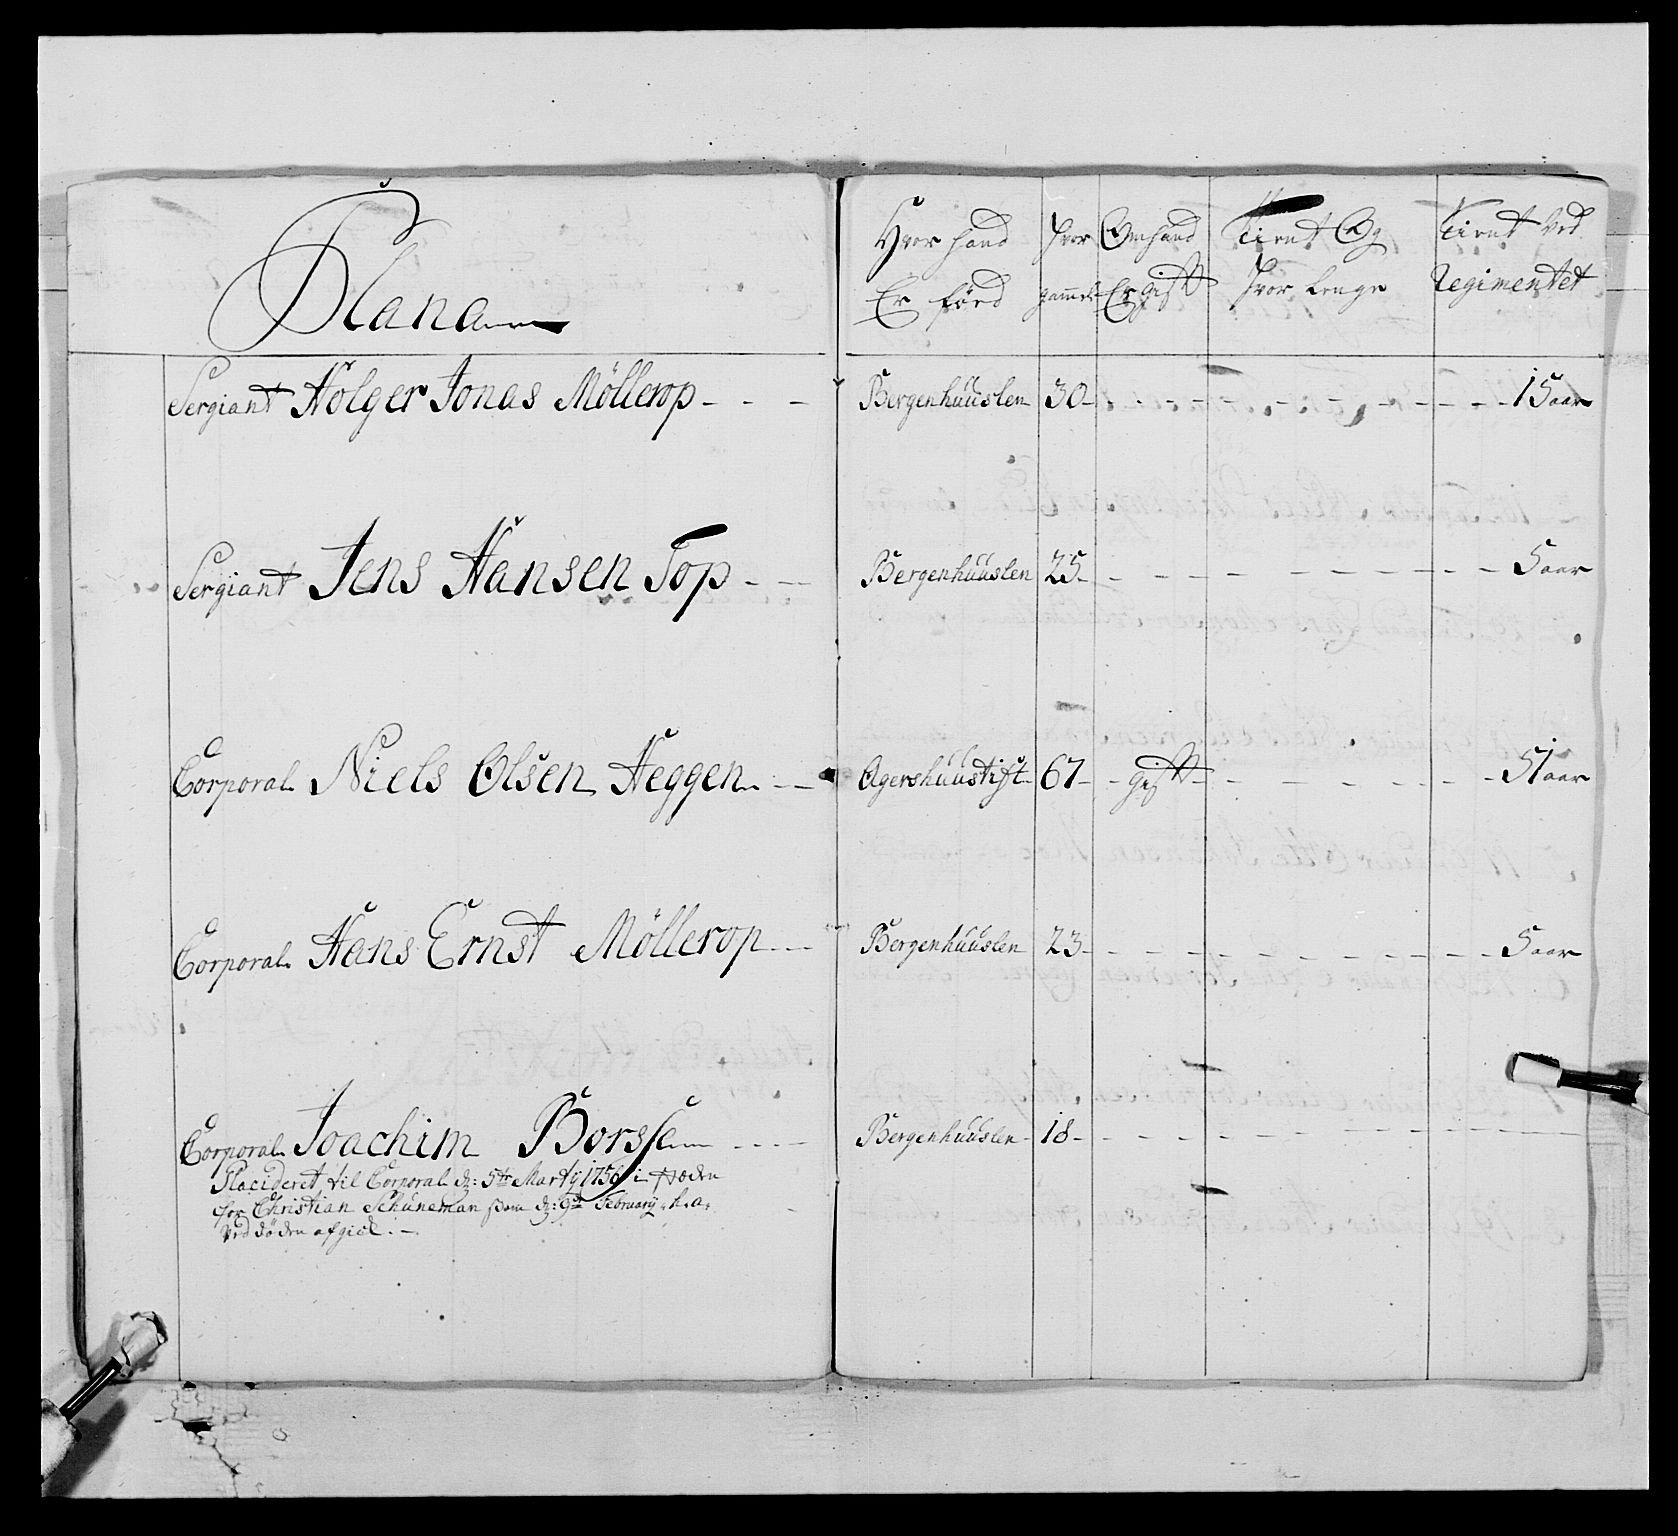 Plana
Hvor hand Er föed
Hvor gammel
Om hand Er gift
Tient Og Hvor Lenge
Tient Ved Regimentet
Sergiant Holger Jonas Möllerop - - - Bergenhuuslen 30 - - - 15 aar
Sergiant Jens Hansen Top - - - Bergenhuuslen 25 - - - 5 aar
Corporal Niels Olsen Heggen - - - Agershuustift 67 - gift - - - 51 aar
Corporal Hans Ernst Möllerop - - - Bergenhuuslen 23 - - - 5 aar
Corporal Joachim Borssa - - - Bergenhuuslen 18 - - -
Placideret til Corporal d: 5te Martÿ 1756 i
for Christian Schuneman som d: 9de Februarÿ h: a:
Ved döden afgick. -